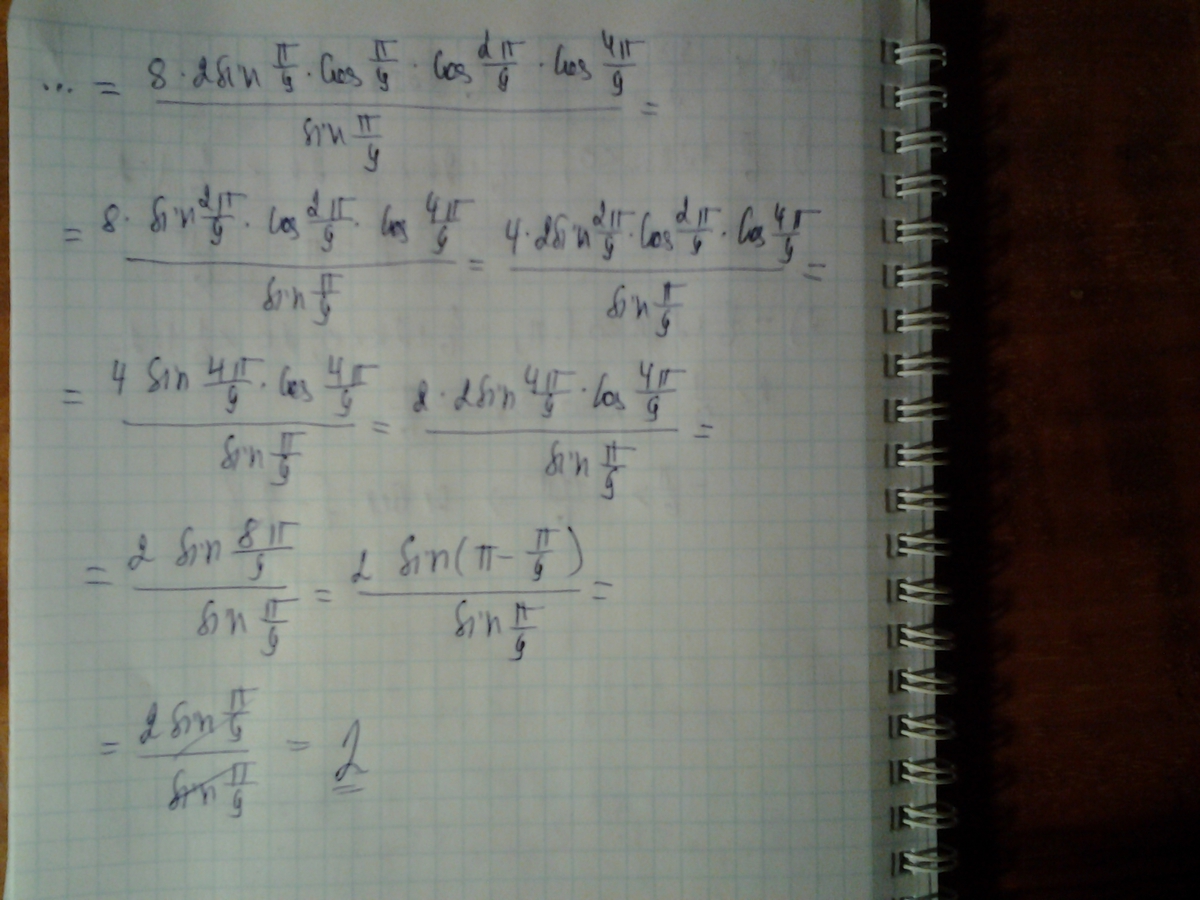 ... = (8 · 2sin π/9 · cos π/9 · cos 2π/9 · cos 4π/9) / (sin π/9) =
= (8 · sin 2π/9 · cos 2π/9 · cos 4π/9) / (sin π/9) = (4 · 2sin 2π/9 · cos 2π/9 · cos 4π/9) / (sin π/9) =
= (4 sin 4π/9 · cos 4π/9) / (sin π/9) = (2 · 2sin 4π/9 · cos 4π/9) / (sin π/9) =
= (2 sin 8π/9) / (sin π/9) = (2 sin(π - π/9)) / (sin π/9) =
= (2 sin π/9) / (sin π/9) = 2